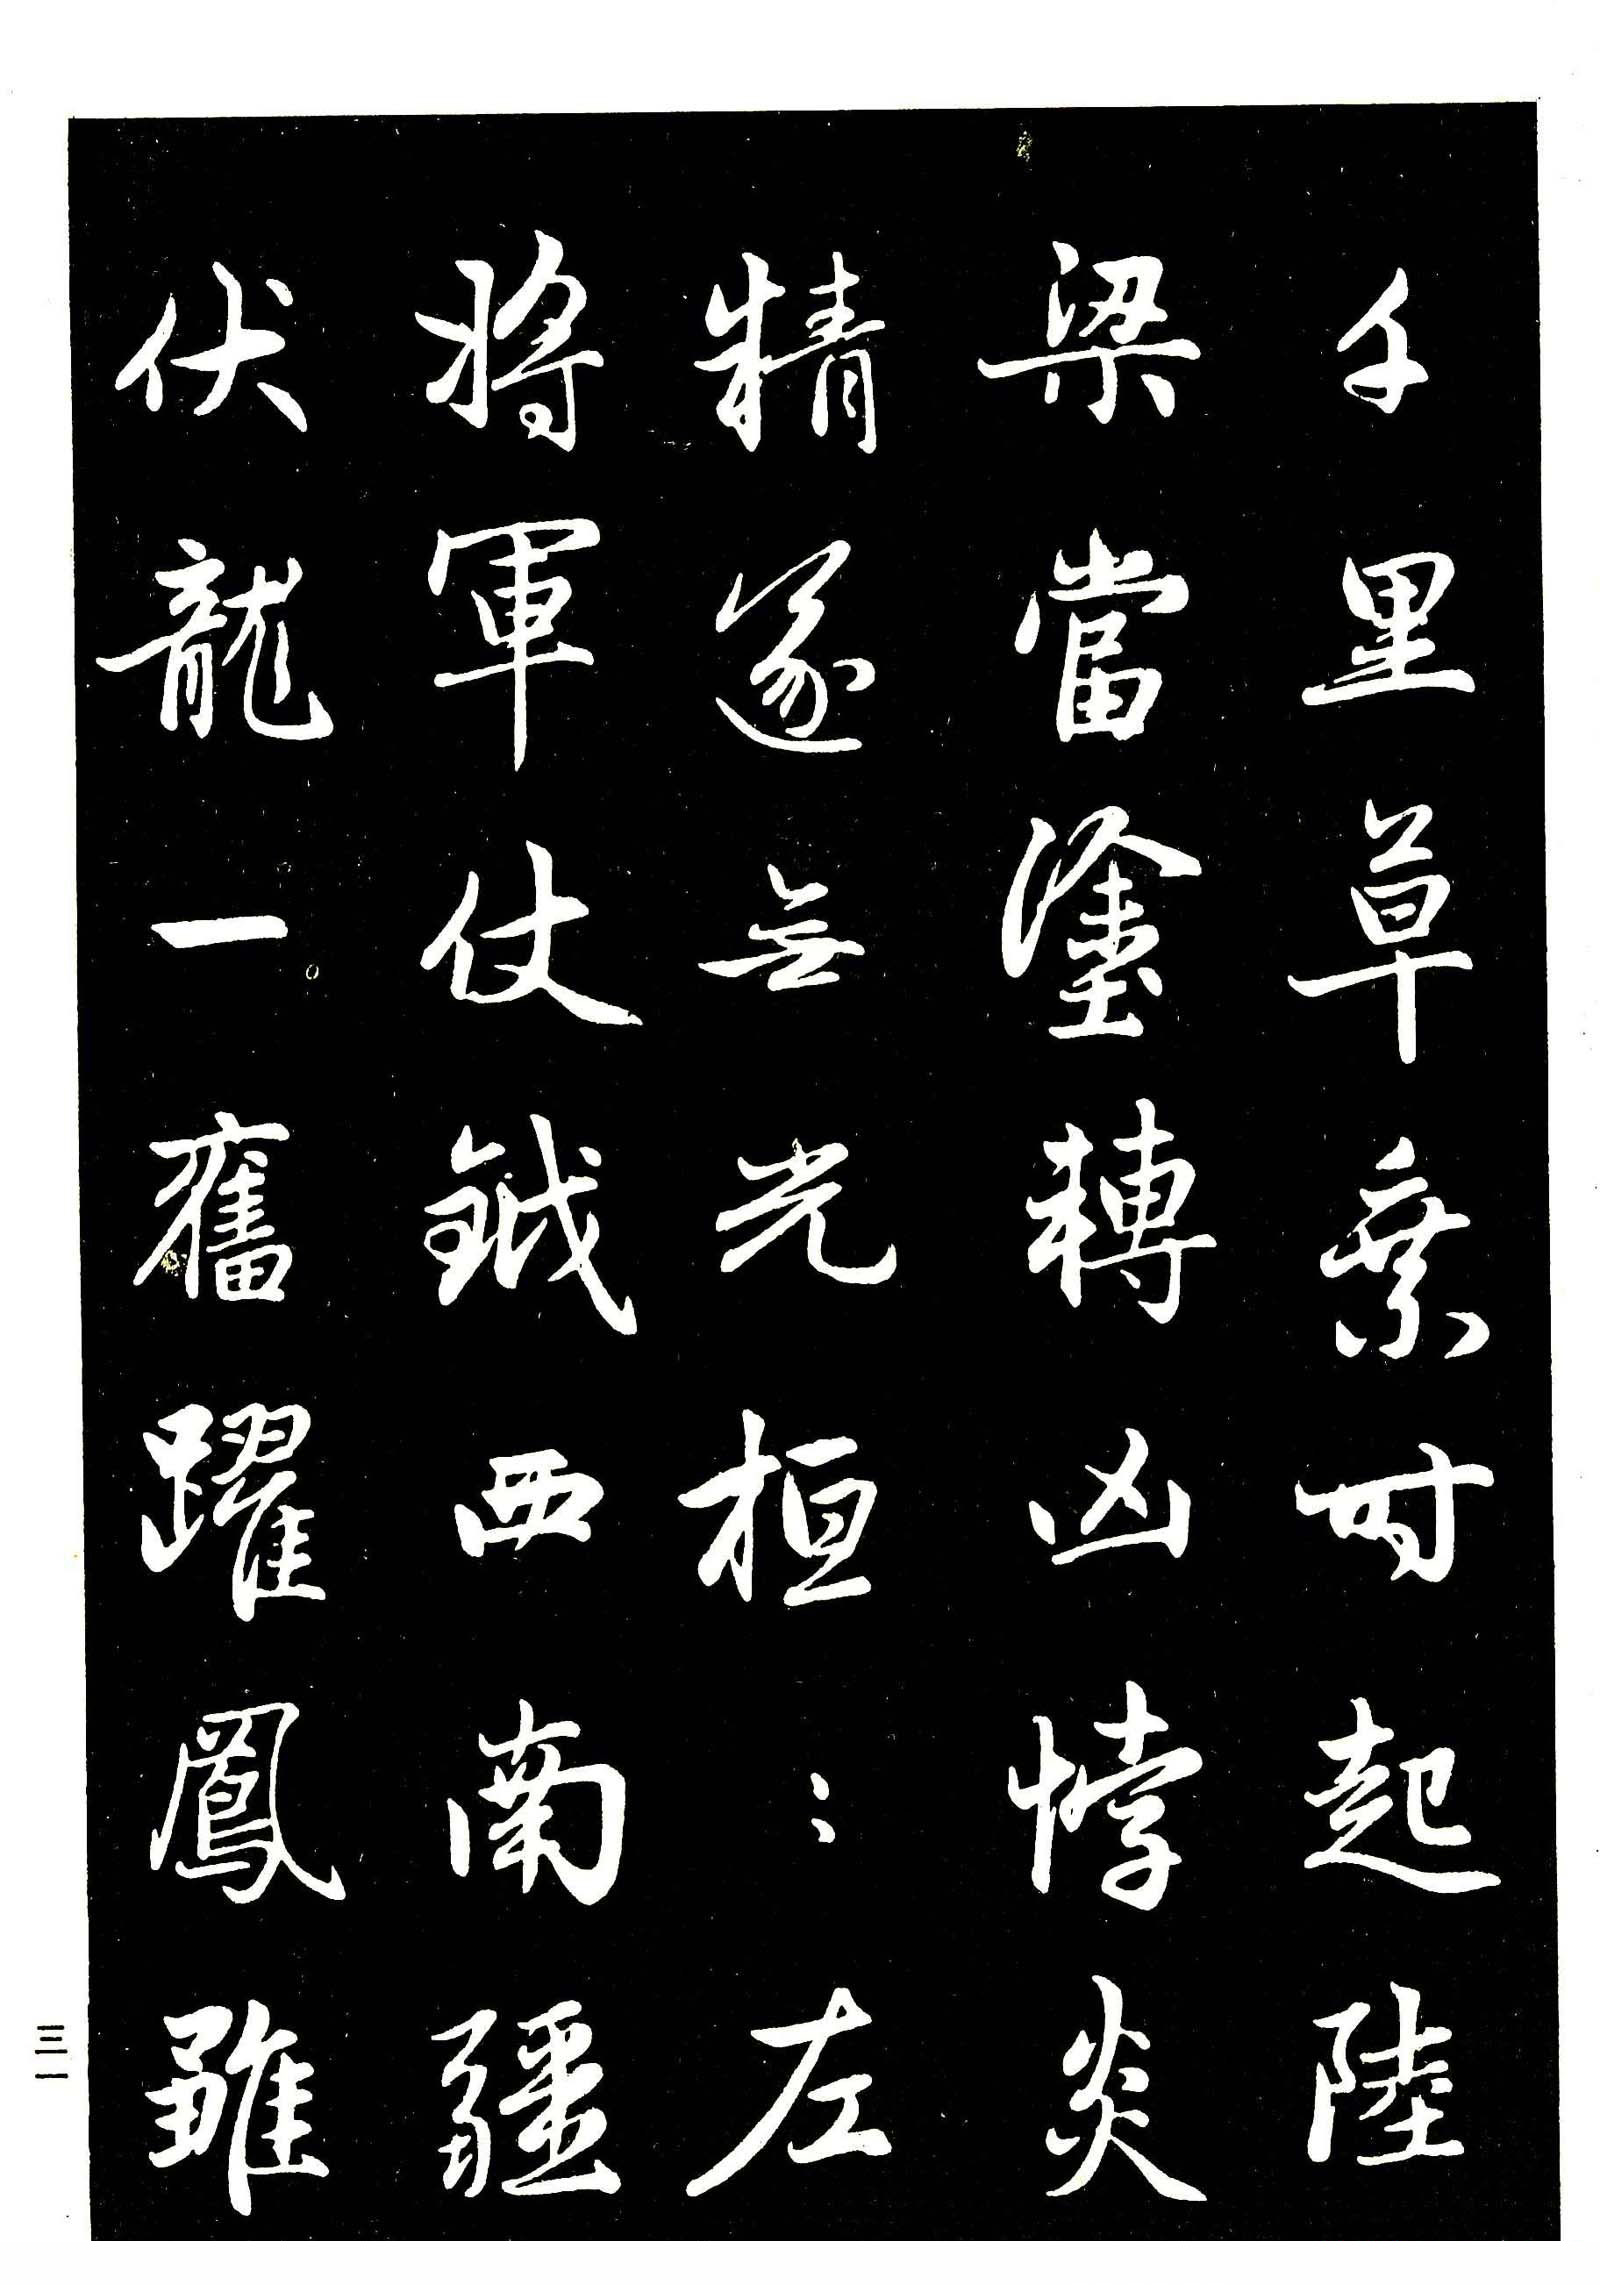 千里草乘時起陸
梁當塗轉凶悖炎
精遂無光桓〻左
將軍仗鉞西南疆
伏龍一奮躍鳳雛
三二